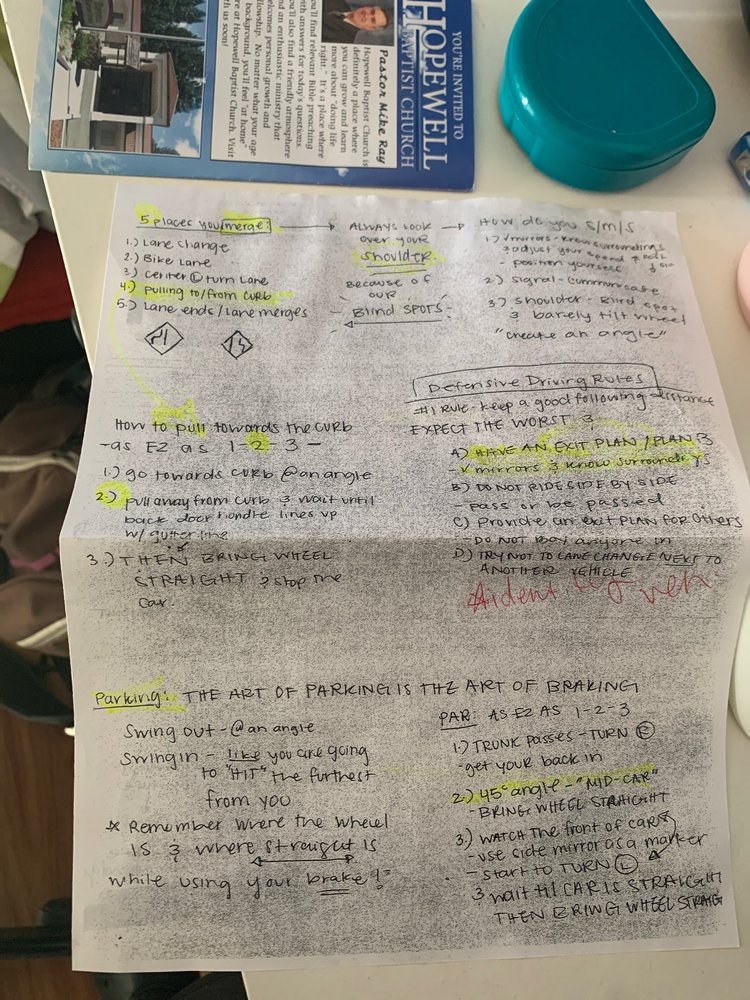 YOU'RE INVITED TO
HOPEWELL
BAPTIST CHURCH
Pastor Mike Ray
Hopewell Baptist Church is
definitely a place where
you can grow and learn
more about "doing life
right" - It's a place where
you'll find relevant Bible preaching
with answers for today's questions.
you'll also find a friendly atmosphere
and an enthusiastic ministry that
welcomes personal growth and
fellowship. No matter what your age
background you'll feel "at home"
here at Hopewell Baptist Church. Visit
us soon!
5 places you merge:
1.) Lane change
2.) Bike Lane
3.) Center L turn Lane
4.) pulling to/from curb
5.) Lane ends/Lane merges
ALWAYS LOOK
over your
shoulder
Because of
our
Blind SPOTS
How do you S/M/S
1.) √mirrors - know surroundings
& adjust your speed
- position yourself
2.) signal - communicate
3.) shoulder - Blind spot
& barely tilt wheel
"create an angle"
Defensive Driving Rules
#1 RULE - keep a good following distance
EXPECT THE WORST &
A) HAVE AN EXIT PLAN / PLAN B
- √ mirrors & know surroundings
B) DO NOT RIDE SIDE BY SIDE
- pass or be passed
C) Provide an exit PLAN FOR others
DO NOT Box anyone in
D) TRY NOT TO LANE CHANGE NEXT TO
ANOTHER VEHICLE
How to pull towards the curb
- as EZ as 1 - 2 3 -
1.) go towards curb @ an angle
2.) pull away from curb & wait until
back door handle lines up
w/ gutter line
3.) THEN BRING WHEEL
STRAIGHT & stop the
car.
Parking: THE ART OF PARKING IS THE ART OF BRAKING
Swing out - @ an angle
Swing in - like you are going
to "HIT" the furthest
from you
* Remember where the wheel
IS & where straight is
while using your brake!
PAR: AS EZ AS 1-2-3
1.) TRUNK Passes - TURN R
- get your back in
2.) 45° angle - "MID-CAR"
- BRING WHEEL STRAIGHT
3.) WATCH The front of CAR
- use side mirror as a marker
- start to TURN L
& wait til CAR IS STRAIGHT
THEN BRING WHEEL STRAIG